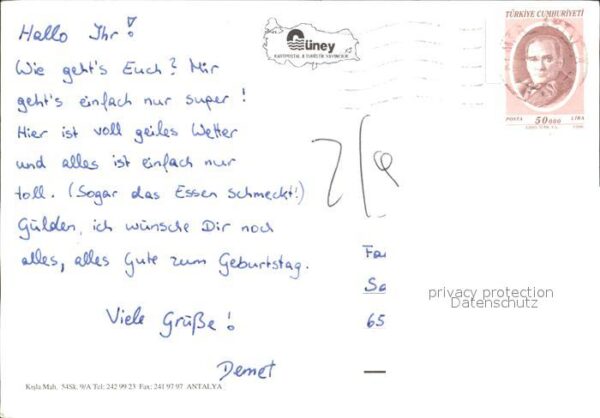 Hallo Ihr!
Güney
KARTPOSTAL & TURİSTİK YAYINCILIK
TÜRKİYE CUMHURİYETİ
Wie geht's Euch? Mir
geht's einfach nur super!
Hier ist voll geiles Wetter
und alles ist einfach nur
toll. (Sogar das Essen schmeckt!)
Gülden, ich wünsche Dir noch
alles, alles Gute zum Geburtstag.
Viele Grüße!
Demet
POSTA 50 000 LİRA
Fa
Sa
65
privacy protection
Datenschutz
Kışla Mah. 54Sk. 9/A Tel: 242 99 23 Fax: 241 97 97 ANTALYA